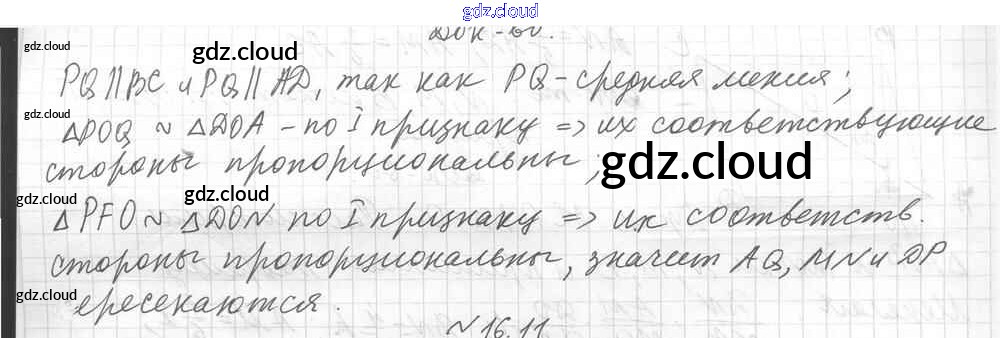 gdz.cloud
Док-во.
gdz.cloud
gdz.cloud
PQ∥BC и PQ∥AD, так как PQ-средняя линия;
gdz.cloud
△POQ ~ △DOA - по I признаку => их соответствующие
стороны пропорциональны;
gdz.cloud
gdz.cloud
gdz.cloud
△PFO ~ △DON по I признаку => их соответств.
стороны пропорциональны, значит AQ, MN и DP
gdz.cloud
ересекаются.
№16.11
gdz.cloud